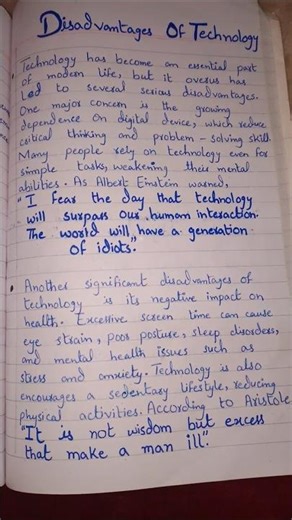 Disadvantages Of Technology
Technology has become an essential part
of modern life, but it overus has
Led to several serious disadvantages.
One major concern is the growing
dependence On digital device, which reduce
critical thinking and problem - solving skill.
Many people rely on technology even for
simple tasks, weakening their mental
abilities. As Albert Einstein warned,
"I fear the day that technology
will surpass our human interaction.
The world will have a generation
of idiots."
Another significant disadvantages of
technology is its negative impact on
health. Excessive screen time can cause
eye strain, poor posture, sleep disorders,
and mental health issues such as
stress and anxiety. Technology is also
encourages a sedentary lifestyle, reducing
physical activities. According to Aristole
"It is not wisdom but excess
that make a man ill."